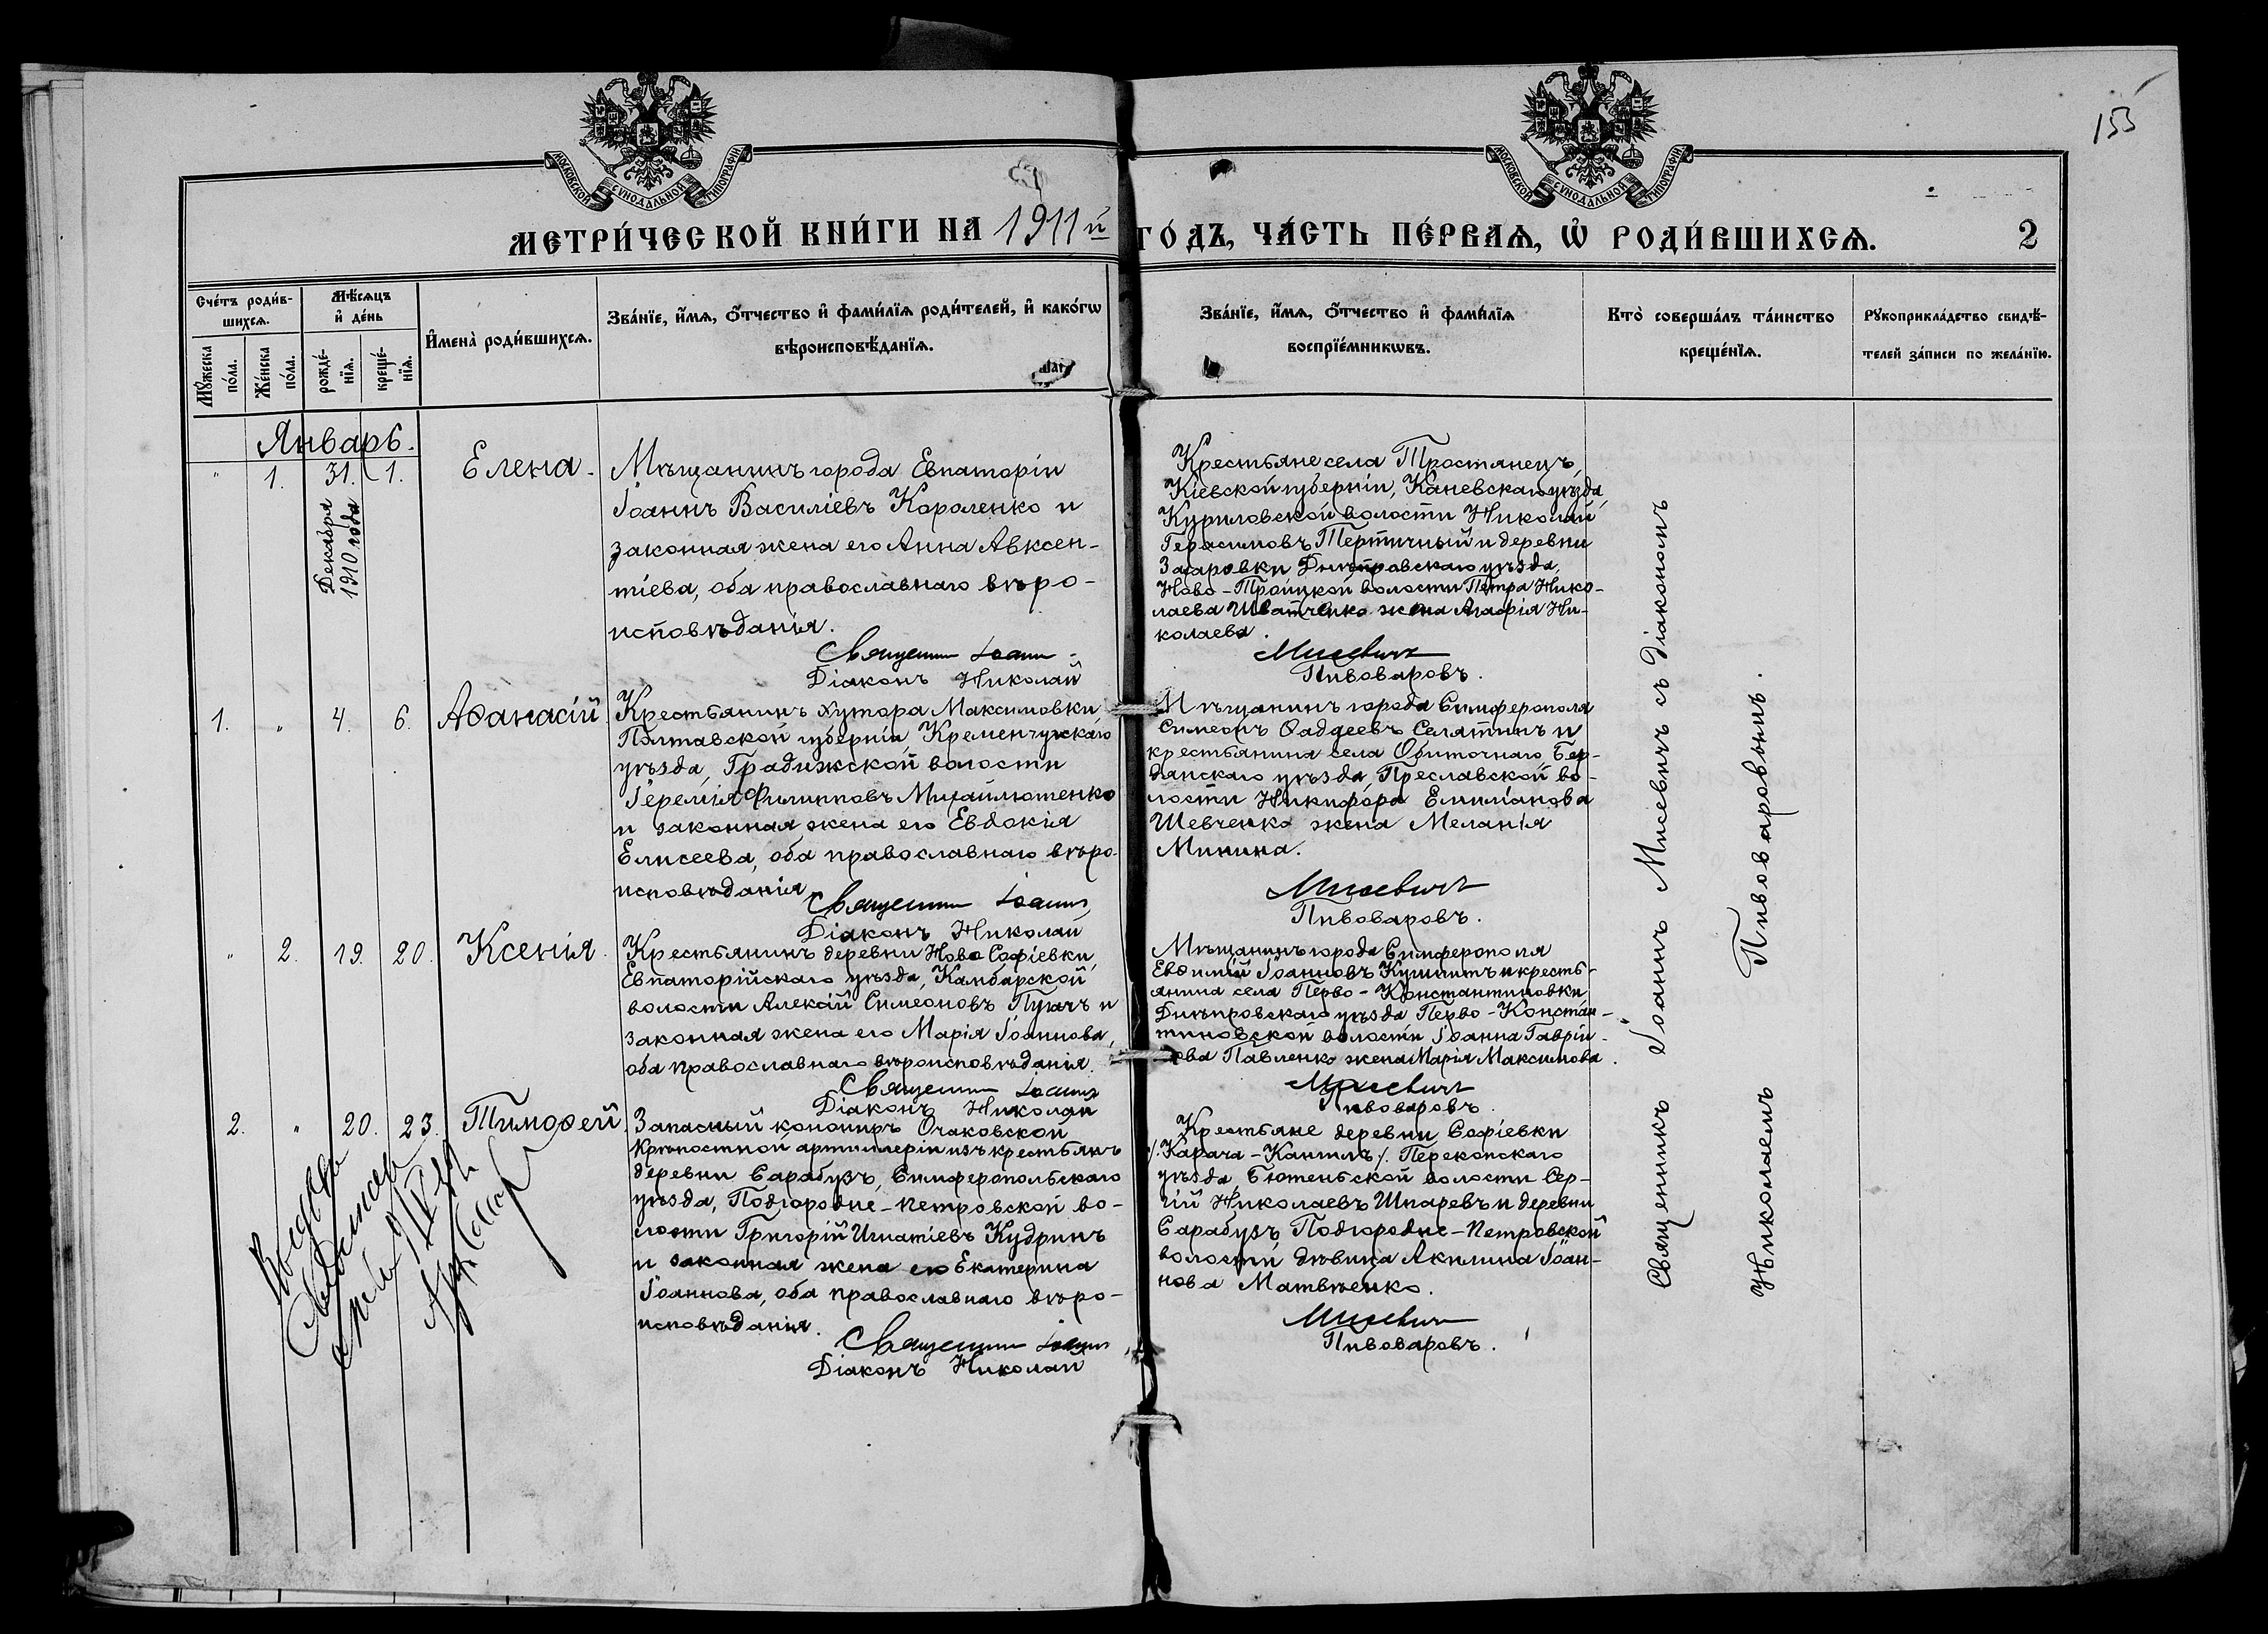 155
МОСКОВСКОЙ СѴНОДАЛЬНОЙ ТИПОГРАФІИ
МОСКОВСКОЙ СѴНОДАЛЬНОЙ ТИПОГРАФІИ
МЕТРИ́ЧЕСКОЙ КНИ́ГИ НА 1911й ГО́ДЪ, ЧА́СТЬ ПЕ́РВАѦ, Ѡ҆ РОДИ́ВШИХСѦ. 2
Сче́тъ роди́в-
шихсѧ.
Мꙋ́жеска
по́ла.
Же́нска
по́ла.
Мѣ́сѧцъ
и҆ де́нь
рожде́-
нїѧ.
креще́-
нїѧ.
И҆мена̀ роди́вшихсѧ.
Зва́нїе, и҆́мѧ, ѻ҆́тчество и҆ фами́лїѧ роди́телей, и҆ како́гѡ
вѣроисповѣ́данїѧ.
Зва́нїе, и҆́мѧ, ѻ҆́тчество и҆ фами́лїѧ
воспрїе́мникѡвъ.
Кто̀ соверша́лъ та́инство
креще́нїѧ.
Рꙋкоприкла́дство свидѣ́-
телей за́писи по жела́нїю.
Январь.
" 1. 31. 1. Елена.
Декабря
1910 года
Мѣщанинъ города Евпаторіи
Іоаннъ Василіевъ Короленко и
законная жена его Анна Авксен-
тіева, оба православнаго вѣро-
исповѣданія.
Священни Іоанн
Діаконъ Николай
Крестьяне села Тростянецъ,
Кіевской губерніи, Каневскаго уѣзда,
Куриловской волости Николай
Герасимовъ Тертичный и деревни
Захаровки Днѣпровскаго уѣзда,
Ново-Троицкой волости Петра Нико-
лаева Шватченко жена Агафія Ни-
колаева.
Мисевичъ
Пивоваровъ.
1. " 4. 6. Аѳанасій
Крестьянинъ хутора Максимовки,
Полтавской губерніи, Кременчугскаго
уѣзда, Градижской волости
Іеремія Филипповъ Михайлютенко
и законная жена его Евдокія
Елисеева, оба православнаго вѣро-
исповѣданія
Священни Іоаннъ
Діаконъ Николай
Мѣщанинъ города Симферополя
Симеонъ Ѳаддеевъ Селятинъ и
крестьянина села Обиточнаго, Бер-
дянскаго уѣзда, Преславской во-
лости Никифора Емиліанова
Шевченко жена Меланія
Минина.
Мисевичъ
Пивоваровъ.
" 2. 19. 20. Ксенія.
Крестьянинъ деревни Ново Софіевки,
Евпаторійскаго уѣзда, Камбарской
волости Алексій Симеоновъ Пугачъ и
законная жена его Марія Іоаннова,
оба православнаго вѣроисповѣданія.
Священни Іоаннъ
Діаконъ Николай
Мѣщанинъ города Симферополя
Евѳимій Іоанновъ и кресть-
янина села Перво-Константиновки
Днѣпровскаго уѣзда Перво-Констан-
тиновской волости Іоанна Гавріи-
лова Павленко жена Марія Максимова.
Мисевичъ
Пивоваровъ.
2. " 20. 23. Тимоѳей
Запасный канониръ Очаковской
крѣпостной артиллеріи изъ крестьянъ
деревни Сарабузъ, Симферопольскаго
уѣзда, Подгородне-Петровской во-
лости Григорій Игнатіевъ Кудринъ
и законная жена его Екатерина
Іоаннова, оба православнаго вѣро-
исповѣданія.
Священни Іоаннъ
Діаконъ Николай
Крестьяне деревни Софіевки
/. Карача-Кангилъ ./. Перекопскаго
уѣзда, Бютеньской волости Сер-
гій Николаевъ Шпаревъ и деревни
Сарабузъ Подгородне-Петровской
волости дѣвица Акилина Іоан-
нова Матвѣенко.
Мисевичъ
Пивоваровъ.
Священникъ Іоаннъ Мисевичъ съ діакономъ
Николаемъ Пивоваровымъ.